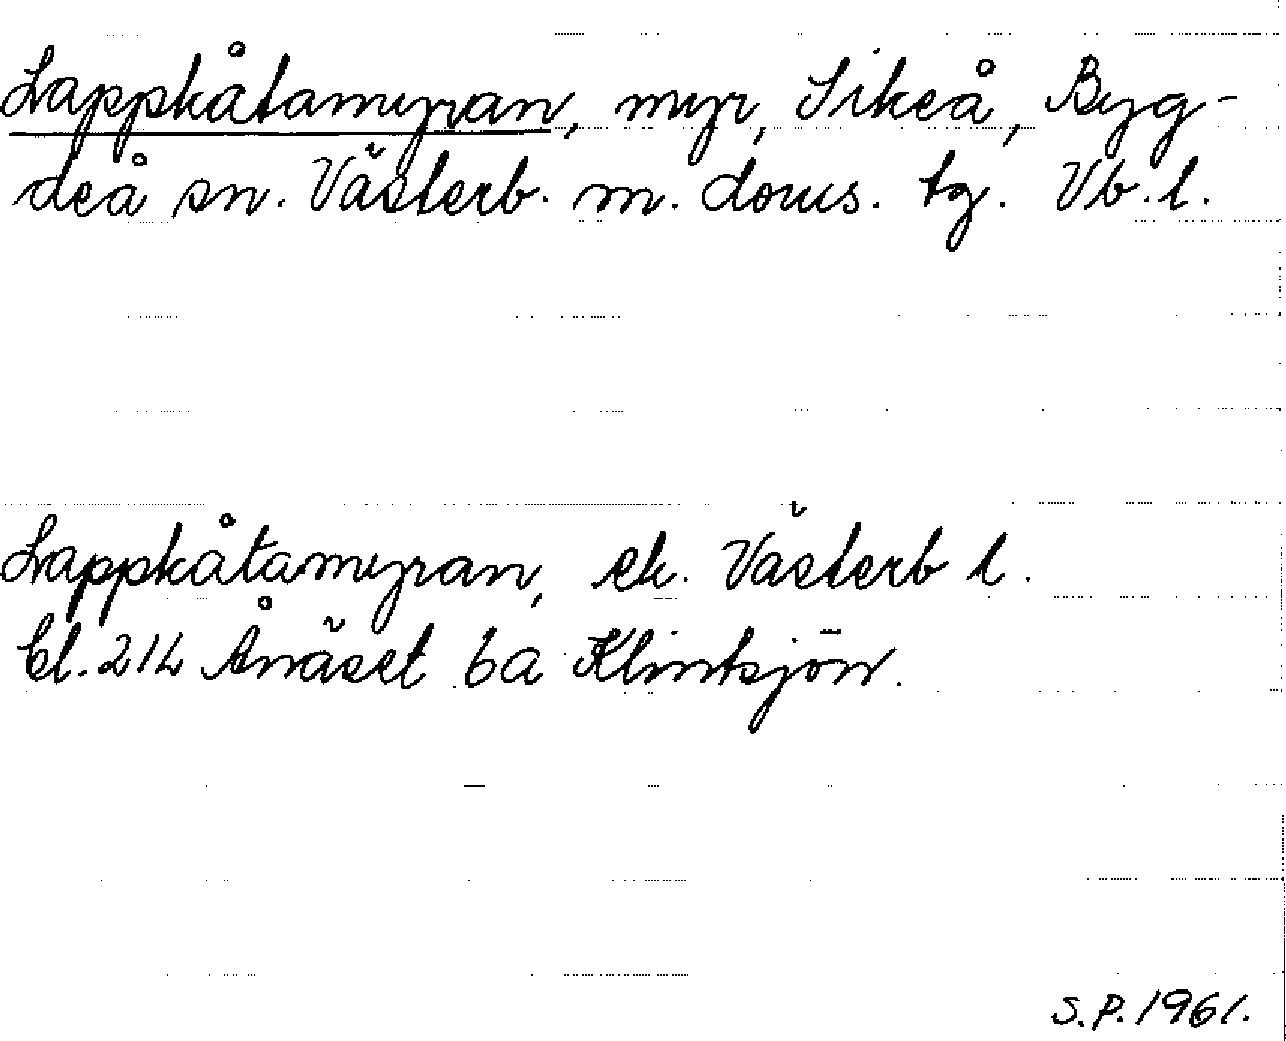 Lappkåtamyran, myr, Sikeå, Byg-
deå sn. Västerb. m. doms. tg. Vb. l.
Lappkåtamyran, ek. Västerb l.
bl. 21L Ånäset 6a Klintsjön.
S.P. 1961.